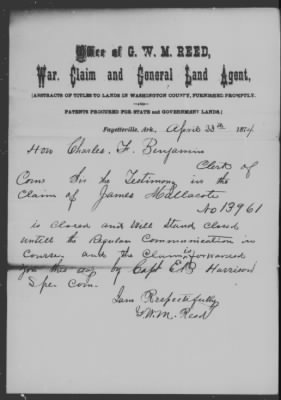 Office of G. W. M. REED,
War, Claim and General Land Agent,
(ABSTRACTS OF TITLES TO LANDS IN WASHINGTON COUNTY, FURNISHED PROMPTLY.
—AND—
PATENTS PROCURED FOR STATE AND GOVERNMENT LANDS.)
Fayetteville, Ark., April 23th 1874
Hon Charles. F. Benjamin
Clerk of
Com Sir the Testimony in the
Claim of James
No 13961
is Closed and Will Stand Closed
untill the Regular Communication in
Course, and the Claim is forwarded
you this day by Capt E B Harrison
Spec Com.
I am Respectfully
G. W. M. Reed